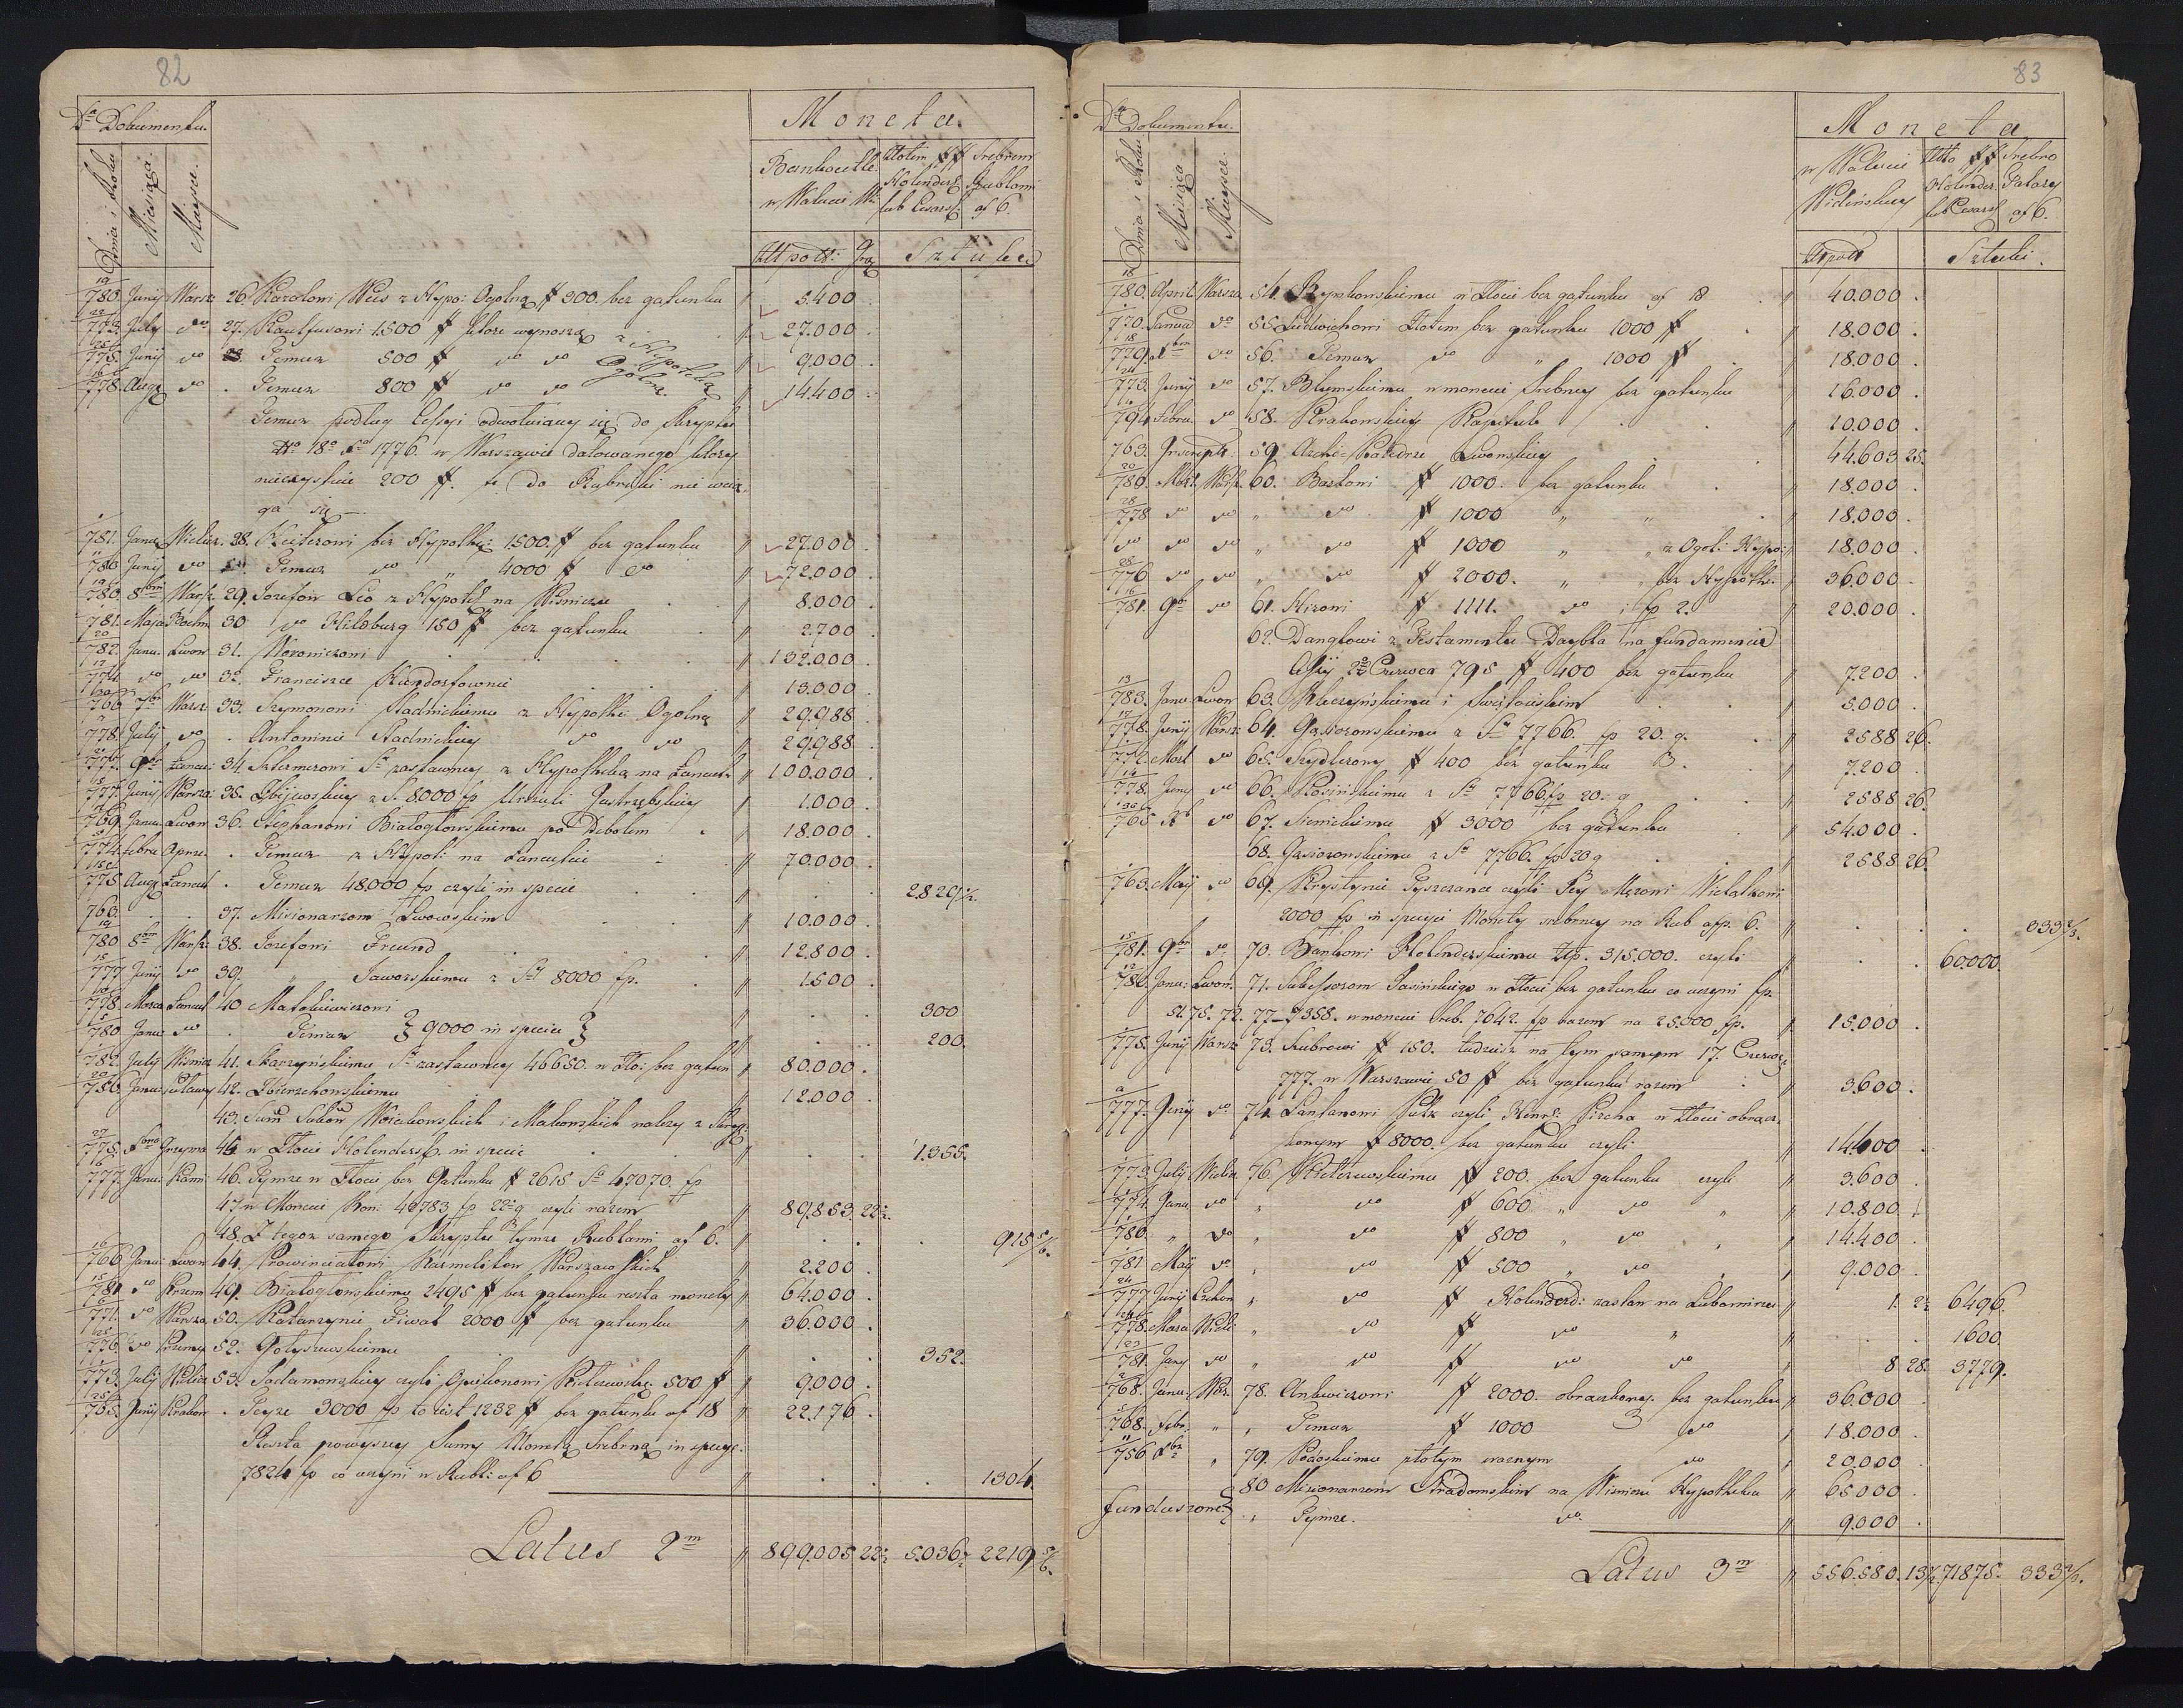 82
Da Dokumentu.
Moneta.
Dnia i Roku
Miesiąca.
Mieysce.
Bankocetle w Walucie Wi:
Złotem ## Holendersk lub Cesarsk.
Srebrem Rublami af 6.
Złt pols: Gr
Sztuków
19 780. Junij Warsz 26. Karolowi Weis z Hypo: Ogolną # 300. bez gatunku 5.400
22 773. July do 27. Kaulfusowi 1.500 # które wynoszą 27.000
775. Junij do Temuż 500 # do do z Hypoteką Ogolną 9.000
16 778. Aug do . Temuż 800 # do do 14.400
Temuż podług Cessyi odwołuiący się do Skryptu
dto 18o 1776. w Warszawie datowanego który
200 #. te do Rubryki nie wcią-
ga się —
781. Janu Wielicz. 28. bez Hypotheki 1500. # bez gatunku 27.000
786 Junij do Temuż do " 4000 # do 72.000
19 780. 8bris Warsz. 29. Jozefow Leo z Hypot. na Wiśniczu 8.000
781. Maja 30 do Hilsburg 150 # bez gatunku 2.700
20 782. Janu. Lwow 31. Moroniczowi 132.000
774. do do 32. Franciszce 13.000
30 766. 7br Warsz. 33. Szymonowi Stadnickiemu z Hypothe Ogolną 29.988
778. July do . Antoninie Stadnickiey do do 29.988
777. 9br Łancut: 34. Sztermerowi Sy zastawney z Hypotheką na Łancut. 100.000
777. Junij Warsza: 35. z S. 8000 fp Urszuli Jastrzębskiey 1.000
769. Janu. Lwow 36. Stephanowi Białogłowskiemu po Debolem 18.000
774. Febru . Temuż z Hypot: na Łancutie 70.000
775. Aug Łancut . Temuż 48.000 fp czyli in specie 2829 1/2.
763. 37. Misionarzom Lwowskim 10.000
19 780 8br Warsz: 38. Jozefowi Freund 12.800
15 777 Junij do 39. " Jaworskiemu z Sy 8000 fp. 1.500
778. Marca Łancut 40 Matakiewiczowi 300
5 780 Janu: do . Temuż } 9000 in specie } 200.
782. July Wiśnicz 41. Skarzyńskiemu Sy zastawney 46650. w zło: bez gatun 80.000
786. Janu: 42. Zbierzchowskiemu 12.000
43. Sum Sukow i Makowskich należy z
27 775. 45 w Złocie Holendersk. in specie 1.355.
16 777. Janu. 46. Tymże w Złocie bez Gatunku # 2615 Sa 47070. fp
47 w Monecie Kon: 42783 fp 22 1/2 g czyli razem 89.853. 22 1/2.
48. Z tegoż samego Skryptu tymże Rublami af 6. 915 5/6.
16 766 Janu: Lwow 44. Prowincialowi Karmelitow Warszawskich 2.200
781 do Przem 49. Białogłowskiemu 2495 # bez gatunku reszta monety 64.000
771. do Warsza. 50. Katarzynie Fiwal 2000 # bez gatunku 36.000
776. do Przemy 52. Gołyszewskiemu 352.
773. July Wielicz 53. Sadamonskiey czyli Opiekunowi Kieltrewsk: 500 # 9.000
765. Junij Krakow . Teyże 3000 fp to iest 1232 # bez gatunku af 18 22.176
Reszta powyszey Sumy Monetą Srebrną in specye
7824 fp co uczyni w Rubl: af 6 1304.
Latus 2m 899.005 22 1/2 5.036 1/2 2219 5/6.
83
Da Dokumentu.
Moneta
Dnia i Roku
Miesiąca
Mieysce.
w Walucie Widenskiey
Złto ## Holender. lub Cesarsk
Srebro Talary af 6.
Złpols
Sztuki.
18 780. April Warsza 54. Rynkowskiemu w Złocie bez gatunku af 18 40.000
770. Janua do 55. Ludwichowi Złotem bez gatunku 1000 # 18.000
18 779. Xbr do 56. Temuż do " 1000 # 18.000
24 773. Junij do 57. Blumskiemu w monecie Srebrney bez gatunku 16.000
794 Febru. do 58. Krakowskiey Kapitule 10.000
763. Inscript: 59. Archi-Katedrze Lwowskiey 44.603 25.
20 780. Mart. Warsz. 60. Bastoni # 1000. bez gatunku 18.000
28 778 do do " do # 1000 " " 18.000
do do do " do # 1000 " " z Ogol: Hypo: 18.000
28 776 do do " do # 2000. " bez Hypothe: 36.000
16 781. 9br do 61. Hizoni # 1111. do i fp 2. 20.000
62. Danglowi z Testamentu Daybla na fundamencie
Cessyi 2o Czerwca 795 # 400 bez gatunku 7.200
13 783. Janu Lwow 63. Kleczyńskiemu i Swiętowskim 5.000
17 778. Junij Warsz: 64. Gąsiorowskiemu z Sy 7766. fp 20. g. 2588 26.
772. Mart do 65. Szydlerowy # 400 bez gatunku 7.200
14 778. Juny do 66. Kosinskiemu z Sy 7766 fp 20. g 2588 26.
30 765 Xb do 67. Sienickiemu # 3000 bez gatunku 54.000
68. Gąsiorowskiemu z Sy 7766. fp 20 g 2588 26.
763. May do 69. Krystynie Tyszczance czyli Iey Mężowi
2000 fp in specye Monety srebrney na Rub afp. 6. 333 2/3.
15 781. 9br do 70. Bankowi Holenderskiemu złp. 315.000. czyli 60.000
12 786. Janu: Lwow. 71. Sukcessorom Jasińskiego w złocie bez gatunku co uczyni fp.
51.75. 72. 77-7358. w monecie Sreb. 7642. fp razem na 25.000 fp. 15.000
775. Junij Warsz 73. Kubrowi # 150. tudzież na tym samym 17. Czerwca
777. w Warszawie 50 # bez gatunku razem 3.600
777. Junij do 74. Lantanowi Pułk czyli Henr: Pircha w Złocie obrącz-
kowym # 8000. bez gatunku czyli 14400
773. July Wielicz 76. Kielczewskiemu # 200. bez gatunku czyli 3.600
774. Janu. do " do # 600 " do " 10.800
780. " do " do # 800 " do " 14.400
781 May do " do # 500 " do " 9.000
24 777. Junij " do # Holendersk: zastaw na Lubomirzu 1. 2 1/2 6496.
778. Mara Wieli " do # do " 1600.
23 781. Juny do " do # do do 8 28. 3779.
768. Janu. War. 78. Ankwiczowi # 2000. obrączkowey bez gatunku 36.000
768. Febr. " " Temuż # 1000 do 18.000
11 756 Xbr " 79. Podoskiemu złotym ważnym do 20.000
Funduszowe 80 Misionarzom Stradomskim na Wisniczu Hypotheka 65.000
" Tymże. do. 9.000
Latus 3m 556.580. 13 1/2 71875. 333 2/3.